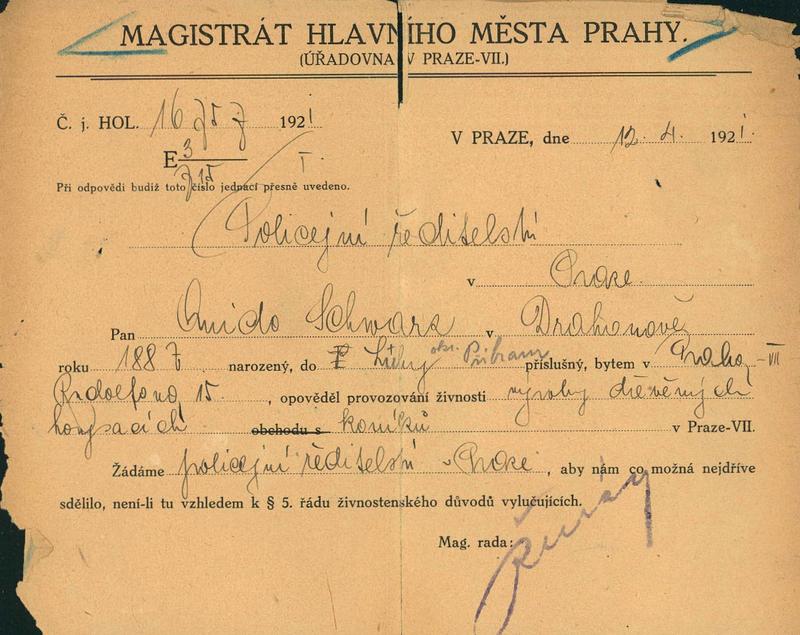 MAGISTRÁT HLAVNÍHO MĚSTA PRAHY.
(ÚŘADOVNA V PRAZE-VII.)
Č. j. HOL. 16757 1921
V PRAZE, dne 12. 4. 1921.
E 3/715 I.
Při odpovědi budiž toto číslo jednací přesně uvedeno.
Policejní ředitelství
v Praze.
Pan Quido Schwarz v Drahonově
roku 1887 narozený, do Lhty okr. Příbram příslušný, bytem v Praha-VII
Rudolfova 15, opověděl provozování živnosti výroby dřevěných
houpacích obchodu s koníků v Praze-VII.
Žádáme policejní ředitelství v Praze, aby nám co možná nejdříve
sdělilo, není-li tu vzhledem k § 5. řádu živnostenského důvodů vylučujících.
Mag. rada: